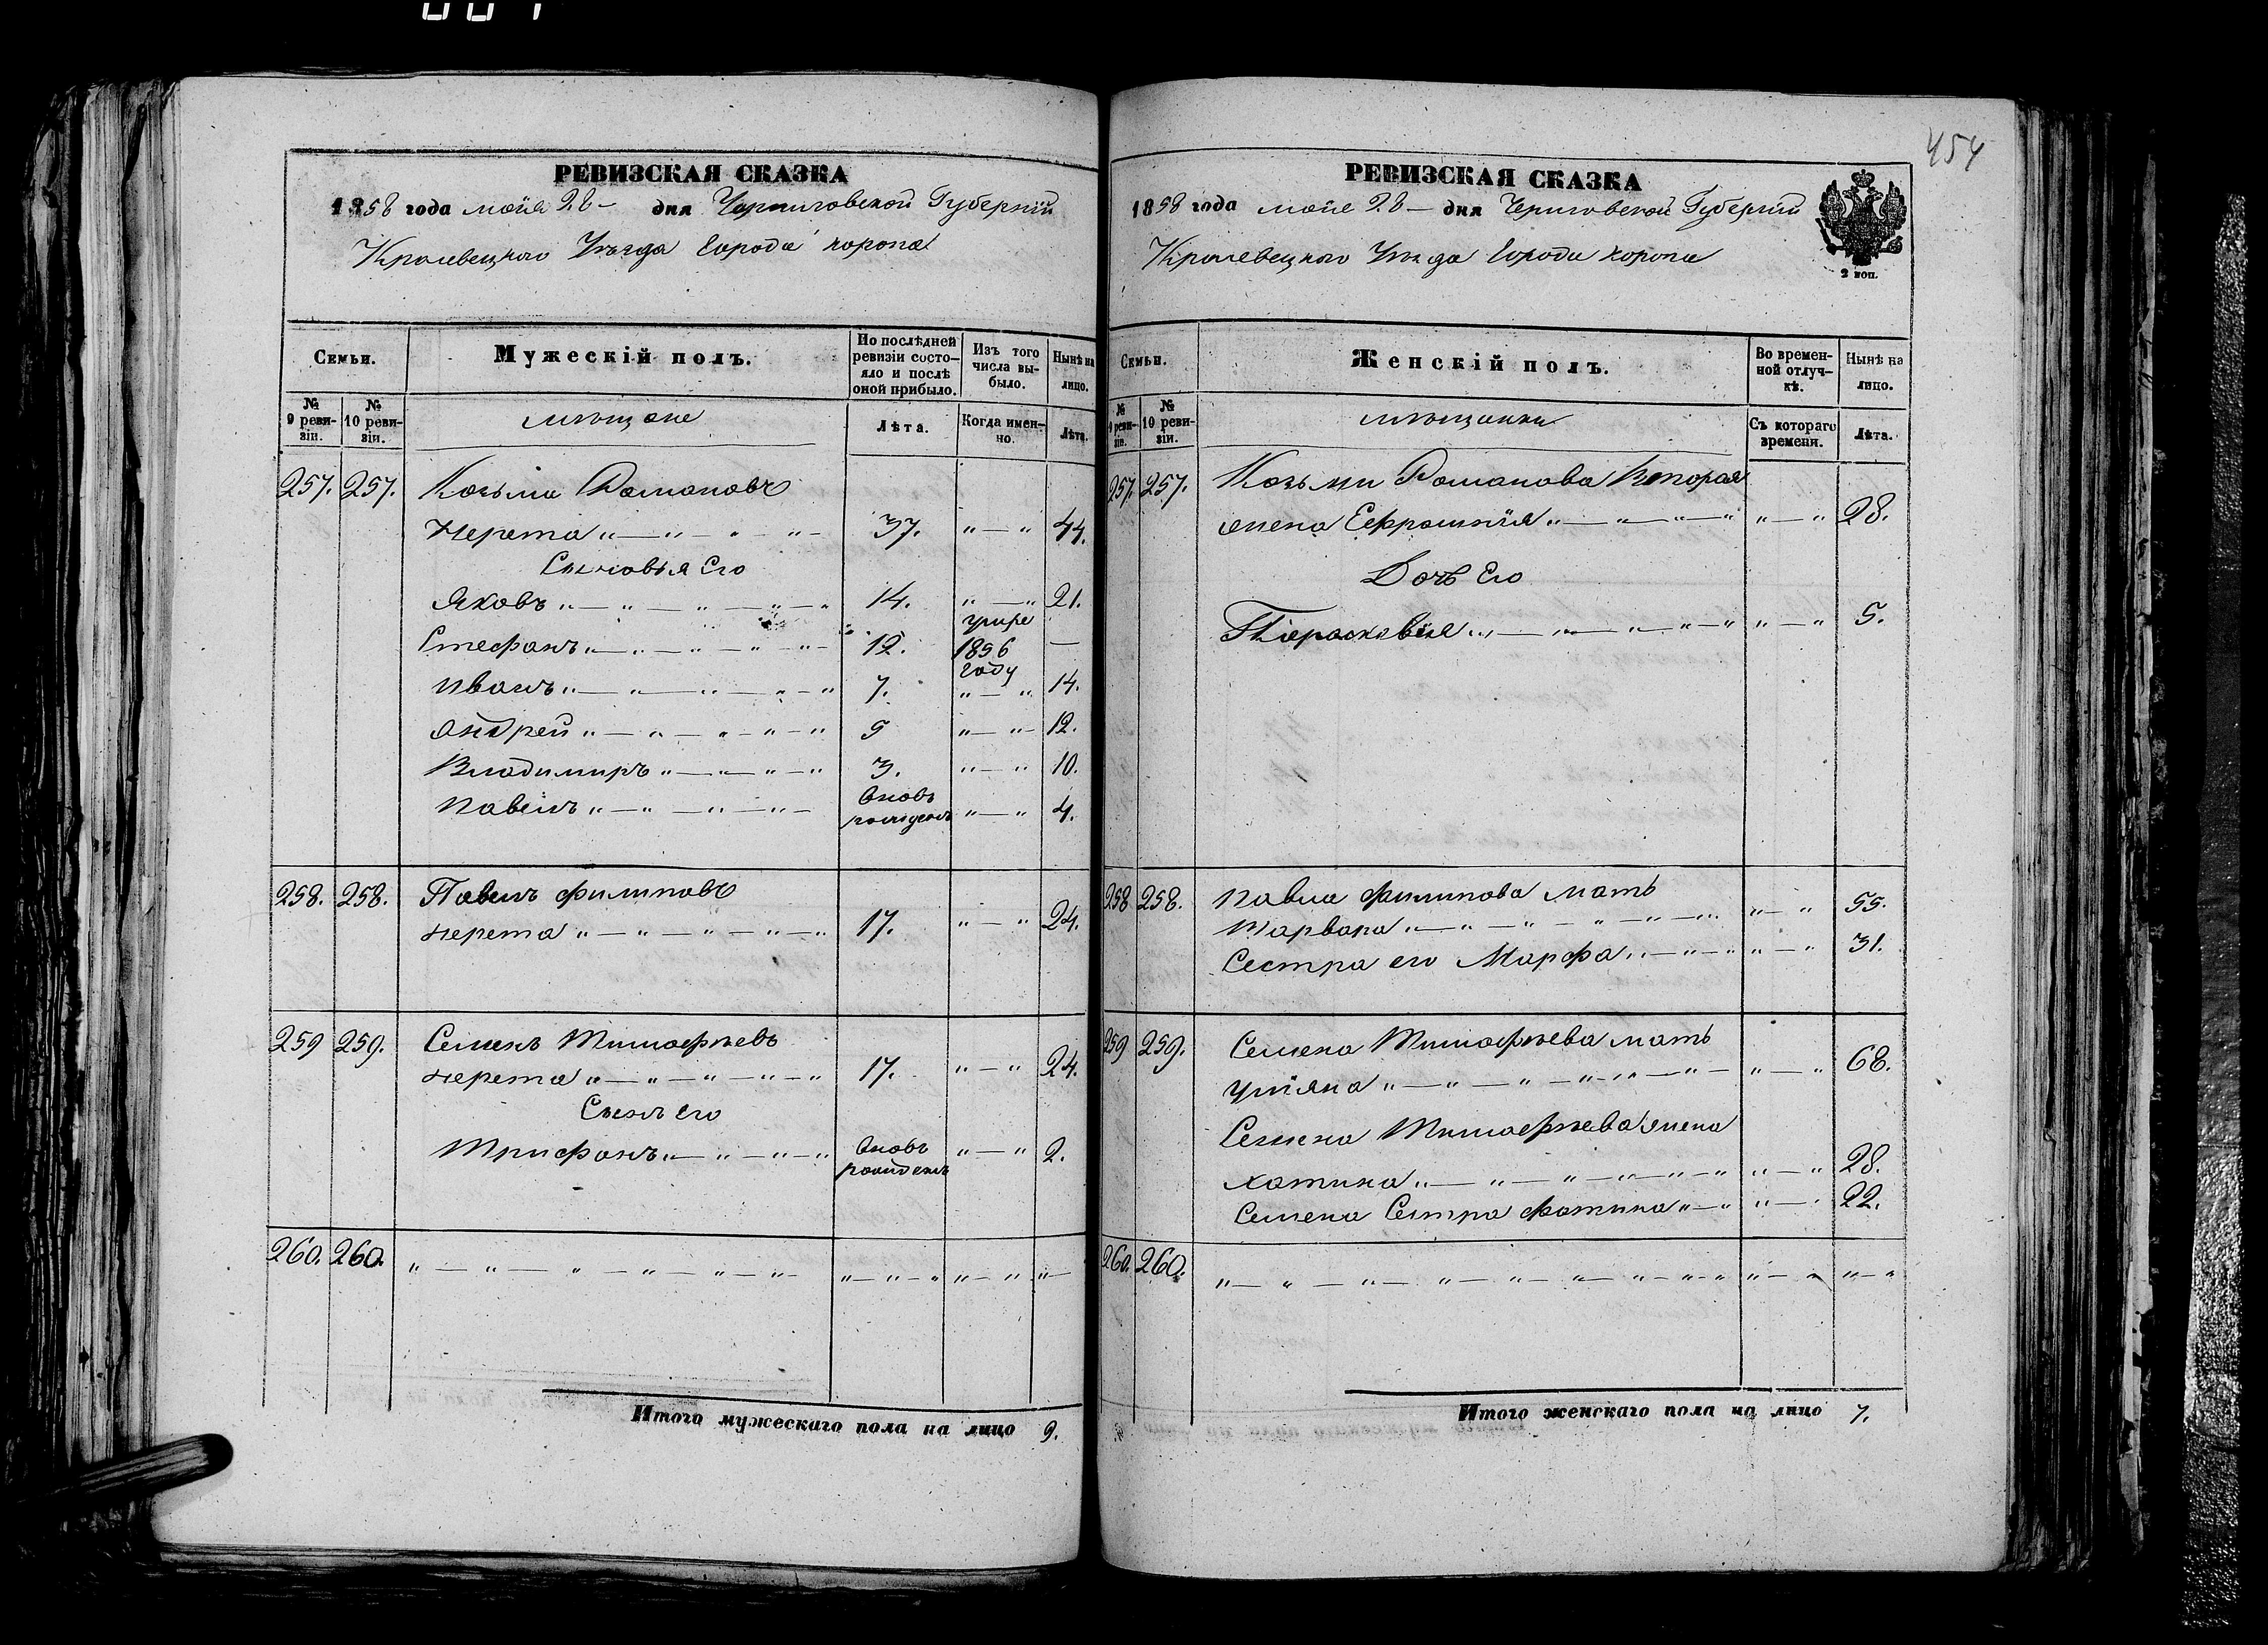 454
РЕВИЗСКАЯ СКАЗКА
1858 года мая 28 — дня Черниговской Губерніи
Кролевецкого Уѣзда Города Коропа
Семьи.
Мужескій полъ.
По послѣдней ревизіи состо-
яло и послѣ
оной прибыло.
Изъ того
числа вы-
было.
Нынѣ на
лицо.
№
9 реви-
зіи.
№
10 реви-
зіи.
мѣщане
Лѣта.
Когда имен-
но.
Лѣта.
257. 257. Козьма Романовъ
Нерета 37. 44.
Сыновья Его
Яковъ 14. 21.
Стефанъ 12. умре 1856 году —
Иванъ 7. 14.
Андрей 5 12.
Владимиръ 3. 10.
Павелъ вновь рожденъ 4.
258. 258. Павелъ Филиповъ
Нерета 17. 24.
259 259. Семенъ Тимофѣевъ
Нерета 17. 24.
Сынъ его
Трифонъ вновь рожденъ 2.
260. 260.
Итого мужескаго пола на лицо 9.
РЕВИЗСКАЯ СКАЗКА
1858 года мая 28 — дня Черниговской Губерніи
Кролевецкого Уѣзда Города Коропа
2 коп.
Семьи.
Женскій полъ.
Во времен-
ной отлуч-
кѣ.
Нынѣ на
лицо.
№
9 реви-
зіи.
№
10 реви-
зіи.
мѣщанки
Съ котораго
времени.
Лѣта.
257. 257. Козьми Романова Вторая
жена Ефросинія 28.
Дочь Его
Параскевія 5.
258 258. Павла Филипова мать
Варвара 55.
Сестра его Марфа 31.
259 259. Семена Тимофѣева мать
Уліяна 68.
Семена Тимофѣева жена
Хатина 28.
Семена Сестра Фотина 22.
260. 260.
Итого женскаго пола на лицо 7.